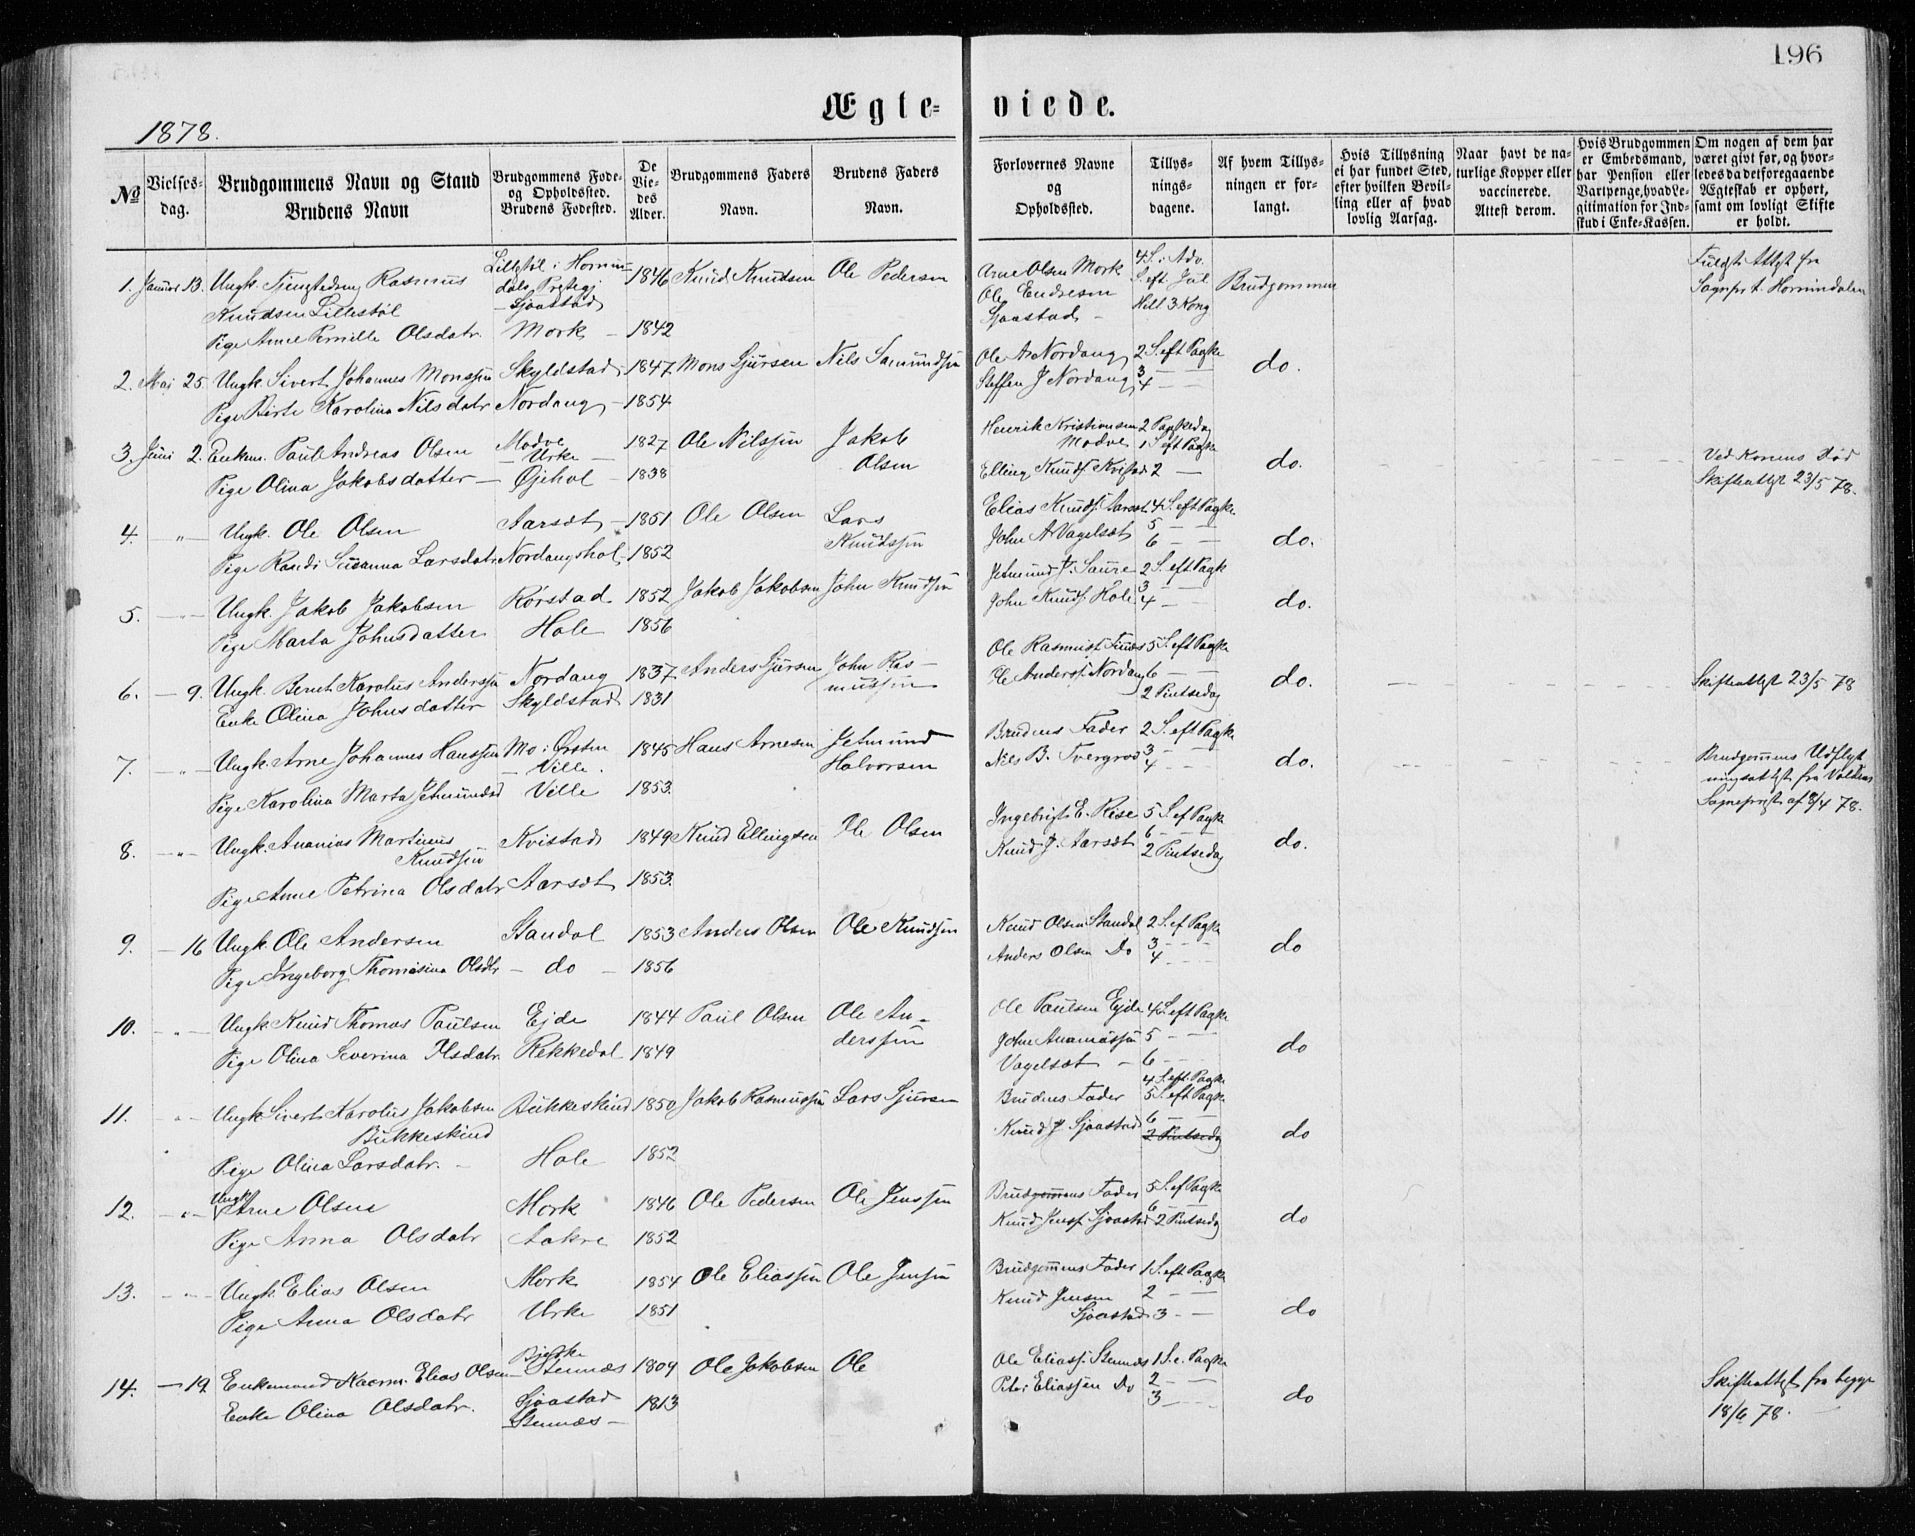 196
Ægte-viede.
1878.
№
Vielses-dag.
Brudgommens Navn og Stand
Brudens Navn
Brudgommens Føde- og Opholdssted.
Brudens Fødested.
De Viedes Alder.
Brudgommens Faders Navn.
Brudens Faders Navn.
Forlovernes Navne og Opholdssted.
Tillysningsdagene.
Af hvem Tillysningen er forlangt.
Hvis Tillysning ei har fundet Sted, efter hvilken Bevilling eller af hvad lovlig Aarsag.
Naar havt de naturlige Kopper eller vaccinerede. Attest derom.
Hvis Brudgommen er Embedsmand, har Pension eller Vartpenge, hvad Legitimation for Indskud i Enke-Kassen.
Om nogen af dem har været givt før, og hvorledes da det foregaaende Ægteskab er ophørt, samt om lovligt Skifte er holdt.
1. Januar 13. Ungk. Rasmus Lillestøl i Hornindals 1846 Knud Knudsen Ole Pedersen Arne Olsen Mork 4 S. i Adv. Brudgommen
Knudsen Lillestøl Sjaastad Ole Endresen S. eft. Jul
Pige Anne Pernille Olsdatr. Mork 1842 Sjaastad Hell 3 Kong
2. Mai 25. Ungk. Sivert Johannes Monssen Skyldstad 1847 Mons Sjursen Nils Samundsen Ole A Nordang 2 S. eft Paaske do.
Pige Birte Karolina Nilsdatr Nordang 1854 Steffen J Nordang 3 — 4 —
3. Juni 2. Enkem. Paul Andreas Olsen Modve 1827 Ole Nilssen Jakob Olsen Henrik Kristiansen Modve do. Ved Konens Død
Urke 1 S eft Paaske Skifteattest 23/5 78.
Pige Olina Jakobsdatter Øjehol 1838 Elling Knuds. Kvistad 2 —
4. " Ungk. Ole Olsen Aarsæt 1851 Ole Olsen Lars Knudsen Elias Knuds. Aarsæt 4 S. eft Paaske do.
Pige Randi Susanna Larsdatr Nordangshol 1852 John A Vagelsæt 5 — 6 —
5. " Ungk. Jakob Jakobsen Rørstad 1852 Jakob Jakobsen John Knudsen Jetmund J. Saure 2 S. eft Paask do.
Pige Marta Johnsdatter Hole 1856 John Knuds. Hole 3 4 —
6. — 9. Ungk. Bernt Karolus Anderssen Nordang 1837 Anders Sjursen John Rasmussen Ole Rasmus 5 S. eft Paaske do. Skifteattest 23/5 78
Enke Olina Johnsdatter Skyldstad 1831 Ole Anders. Nordang 6 — 2 Pintsedag
7. " Ungk. Arne Johannes Hanssen Mo i Ørsten 1845 Hans Arnesen Jetmund Halvorsen Brudens Fader 2 S. eft Paaske do. Brudgommens Udflytningsattest fra Voldens Sogneprest af 8/4 78.
Ville. Nils B. Tvergrov 3 — 4
Pige Karolina Marta Jetmundsd Ville 1853.
8. " Ungk. Ananias Martinus Knudsen Kvistad 1849 Knud Ellingsen Ole Olsen Ingebrigt E. Rise 5 S. ef Paaske do.
Pige Anne Petrina Olsdatr Aarsæt 1853. Knud J. Aarsæt 6 — 2 Pintsedag
9. — 16 Ungk. Ole Andersen Standal 1853 Anders Olsen Ole Knudsen Knud Olsen Standal 2 S. ef Paaske do
Pige Ingeborg Thomasina Olsdtr — do — 1856 Anders Olsen Do 3 — 4 —
10. " Ungk. Knud Thomas Paulsen Ejde 1844 Paul Olsen Ole Anderssen Ole Paulsen Ejde 4 S. eft Paaske do
Pige Olina Severina Olsdatr. Rekkedal 1849 John Ananiassen 5 —
Vagelsæt — 6 —
11. " Ungk. Sivert Karolus Jakobsen Bukkeskind 1850 Jakob Rasmussen Lars Sjursen Brudens Fader 4 S. eft. Paaske do
Bukkeskind 5 S. eft Paaske
Pige Olina Larsdatr. Hole 1852 Knud J Sjaastad 6 — 2 Pintsedag
12. " Ungk Arne Olsen Mork 1846 Ole Pedersen Ole Jenssen Brudgommens Fader 5 S. ef Paaske do
Pige Anna Olsdatr Aakre 1852 Knud Jens. Sjaastad 6 — 2 Pintsedag
13. " Ungk. Elias Olsen Mork 1854 Ole Eliassen Ole Jensen Brudgommens Fader 1 S. eft Paaske do
Pige Anna Olsdatr Urke 1851 Knud Jensen Sjaastad 2 — 3 —
14. — 19. Enkemand Elias Olsen Bjerke 1809 Ole Jakobsen Ole Ole Eliass. Stennæs 1 S. e. Paaske do Skifteattest fra begge
Stennæs 18/6 78.
Enke Olina Olsdatr. Sjaastad 1813 Peter Eliassen Do 2 — 3 —
Stennæs